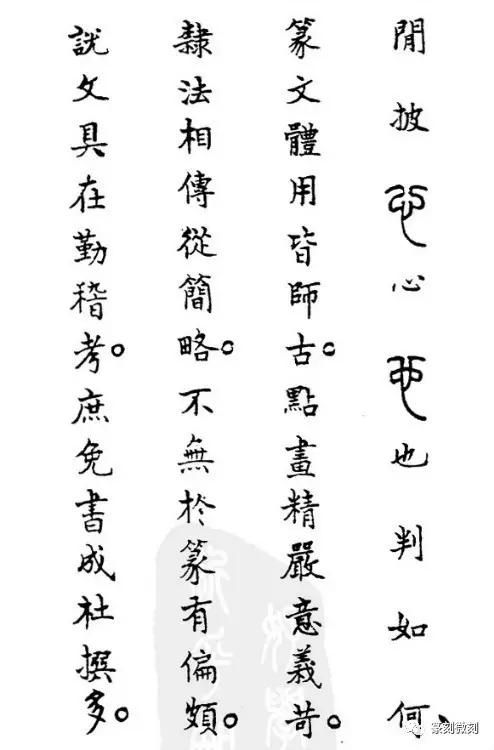 閒披心心也也判如何、
篆文體用皆師古。點畫精嚴意義苛。
隸法相傳從簡略。不無於篆有偏頗。
說文具在勤稽考。庶免書成杜撰多。
篆刻微刻